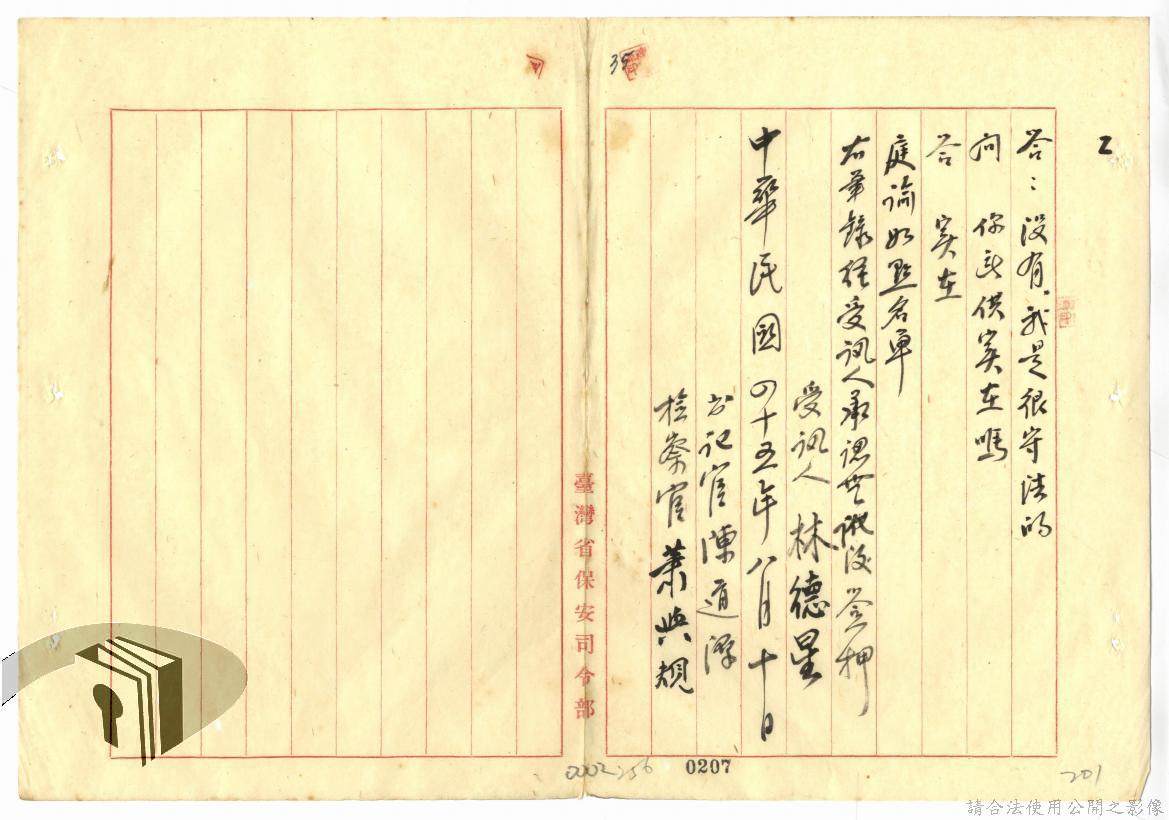 答：没有，我是很守法的
問 你所供实在嗎
答 实在
庭諭如點名單
右筆錄經受訊人承認無訛後簽押
受訊人 林德星
中華民國四十五年八月十日
書記官 陳道
檢察官 萧與規
臺灣省保安司令部
35
0002 256
0207
201
請合法使用公開之影像